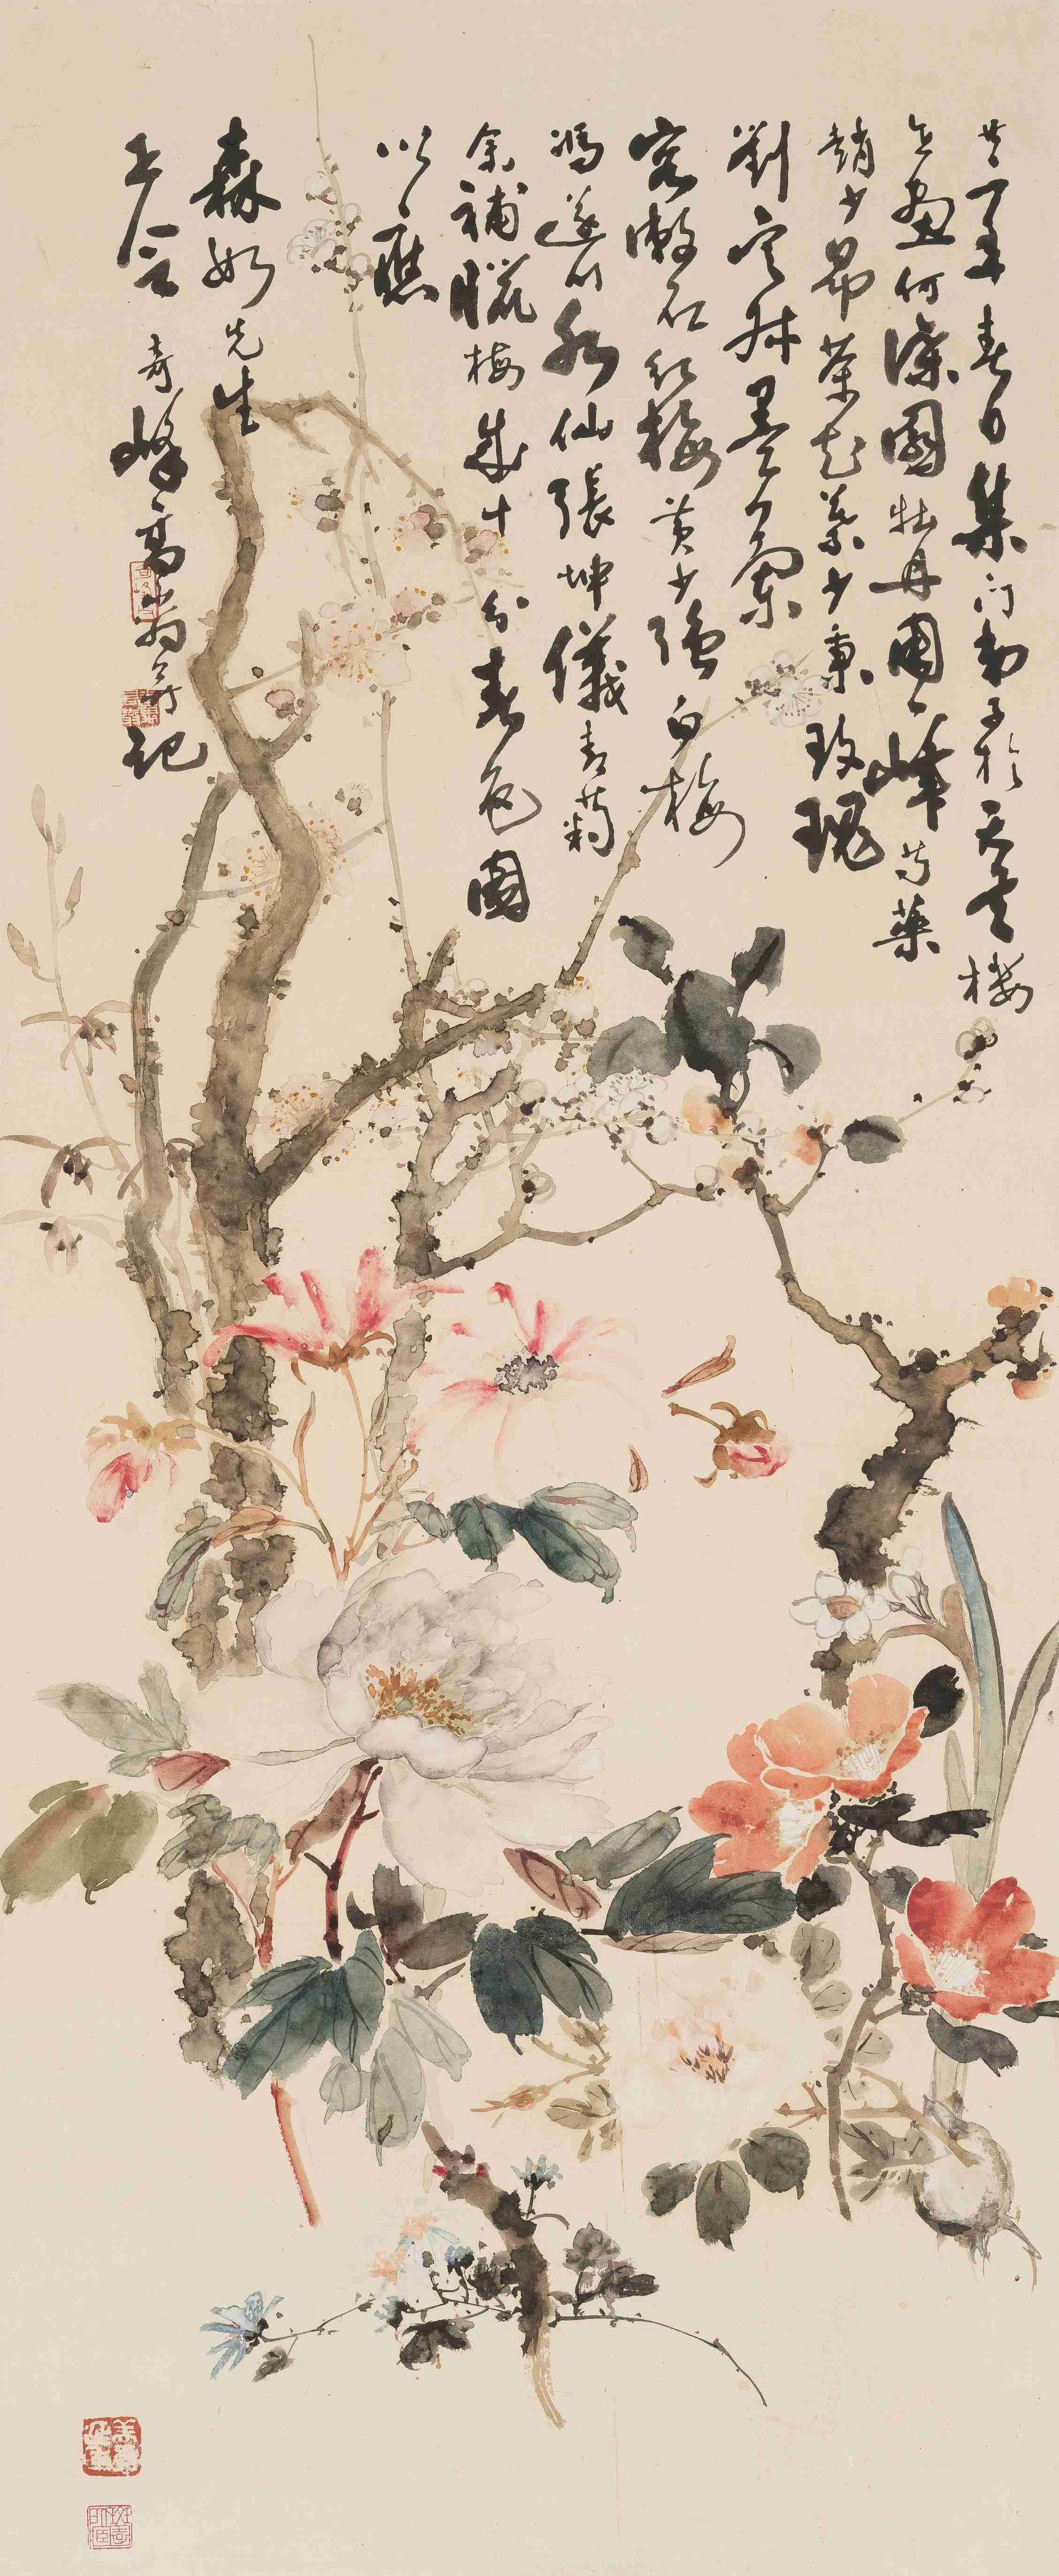 廿一年春日集门弟子於天風樓
合畫何漆園牡丹周一峰芍藥
趙少昂茶花葉少秉玫瑰
劉定叔墨心蘭
容漱石紅梅黃少強白梅
馮水仙張坤儀菊
余補臘梅成十分春色圖
以應
森如先生
之令奇峰高嵡并記